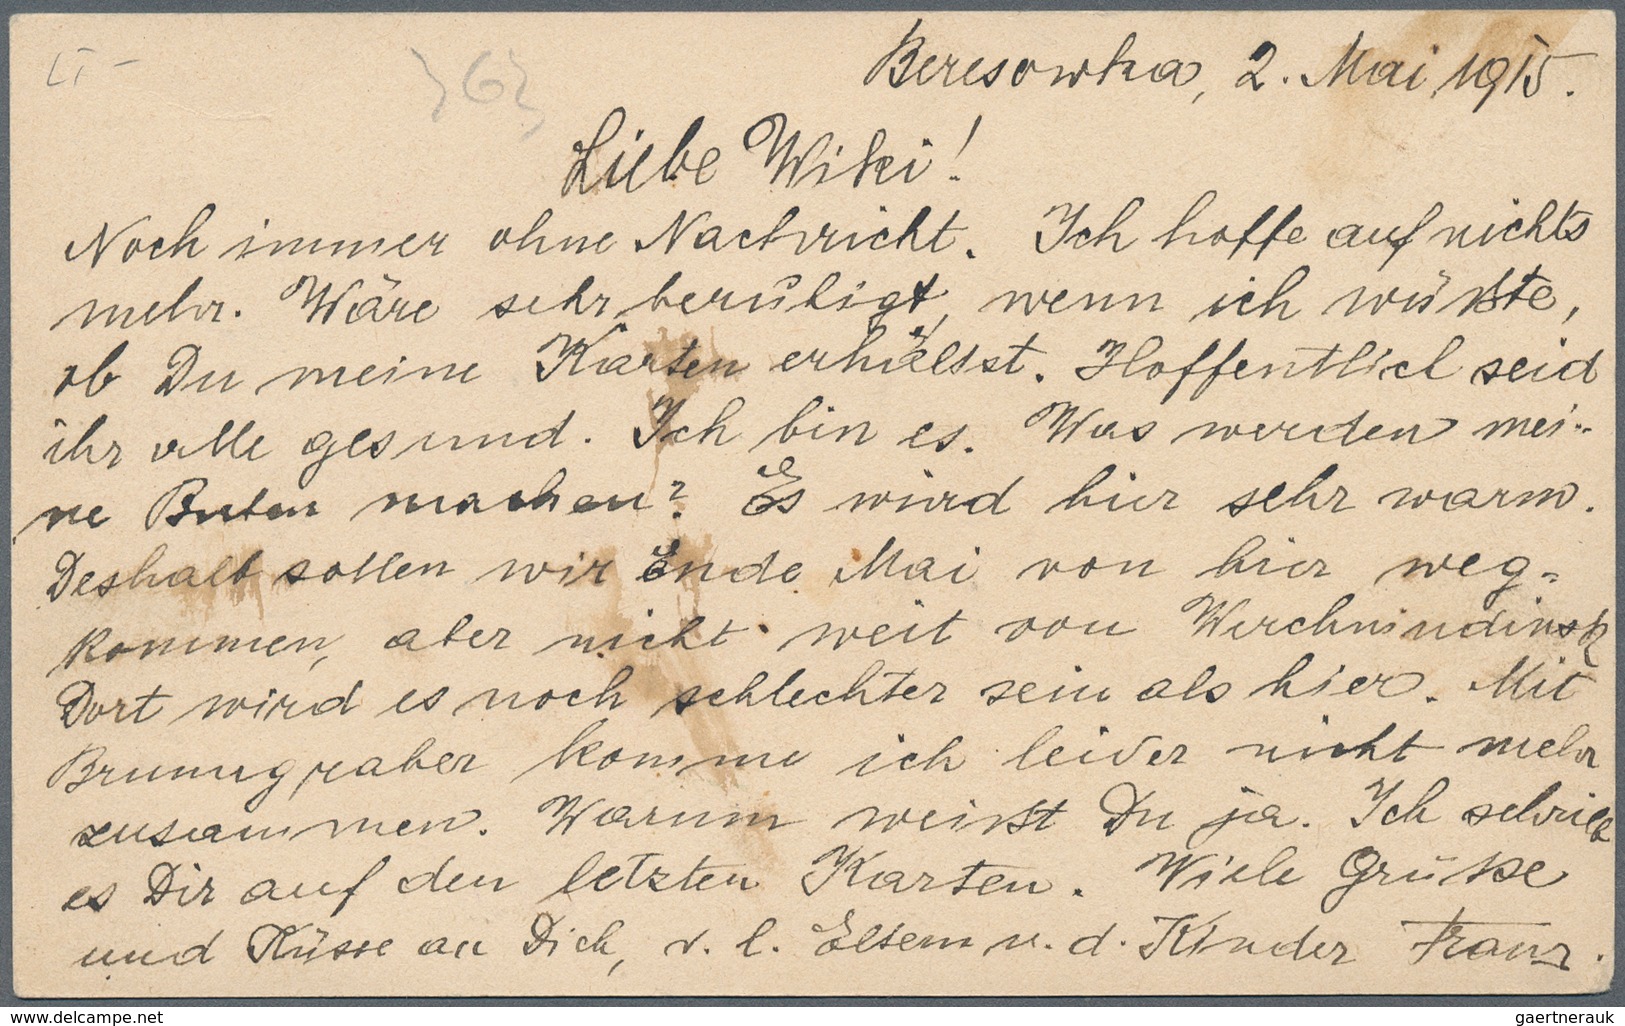 Beresowka, 2. Mai 1915.
Liebe Wiki!
Noch immer ohne Nachricht. Ich hoffe auf nichts
mehr. Wäre sehr beruhigt, wenn ich wüßte,
ob Du meine Karten erhältst. Hoffentlich seid
ihr alle gesund. Ich bin es. Was werden mei-
ne machen? Es wird hier sehr warm.
Deshalb sollen wir Ende Mai von hier weg-
kommen, aber nicht weit von Werchnindinsk
Dort wird es noch schlechter sein als hier. Mit
aber komme ich leider nicht mehr
zusammen. Warum weißt Du ja. Ich schrieb
es Dir auf den letzten Karten. Viele Grüße
und Küsse an Dich, d. l. Eltern u. d. Kinder Franz.
delcampe.net
gaertnerauk